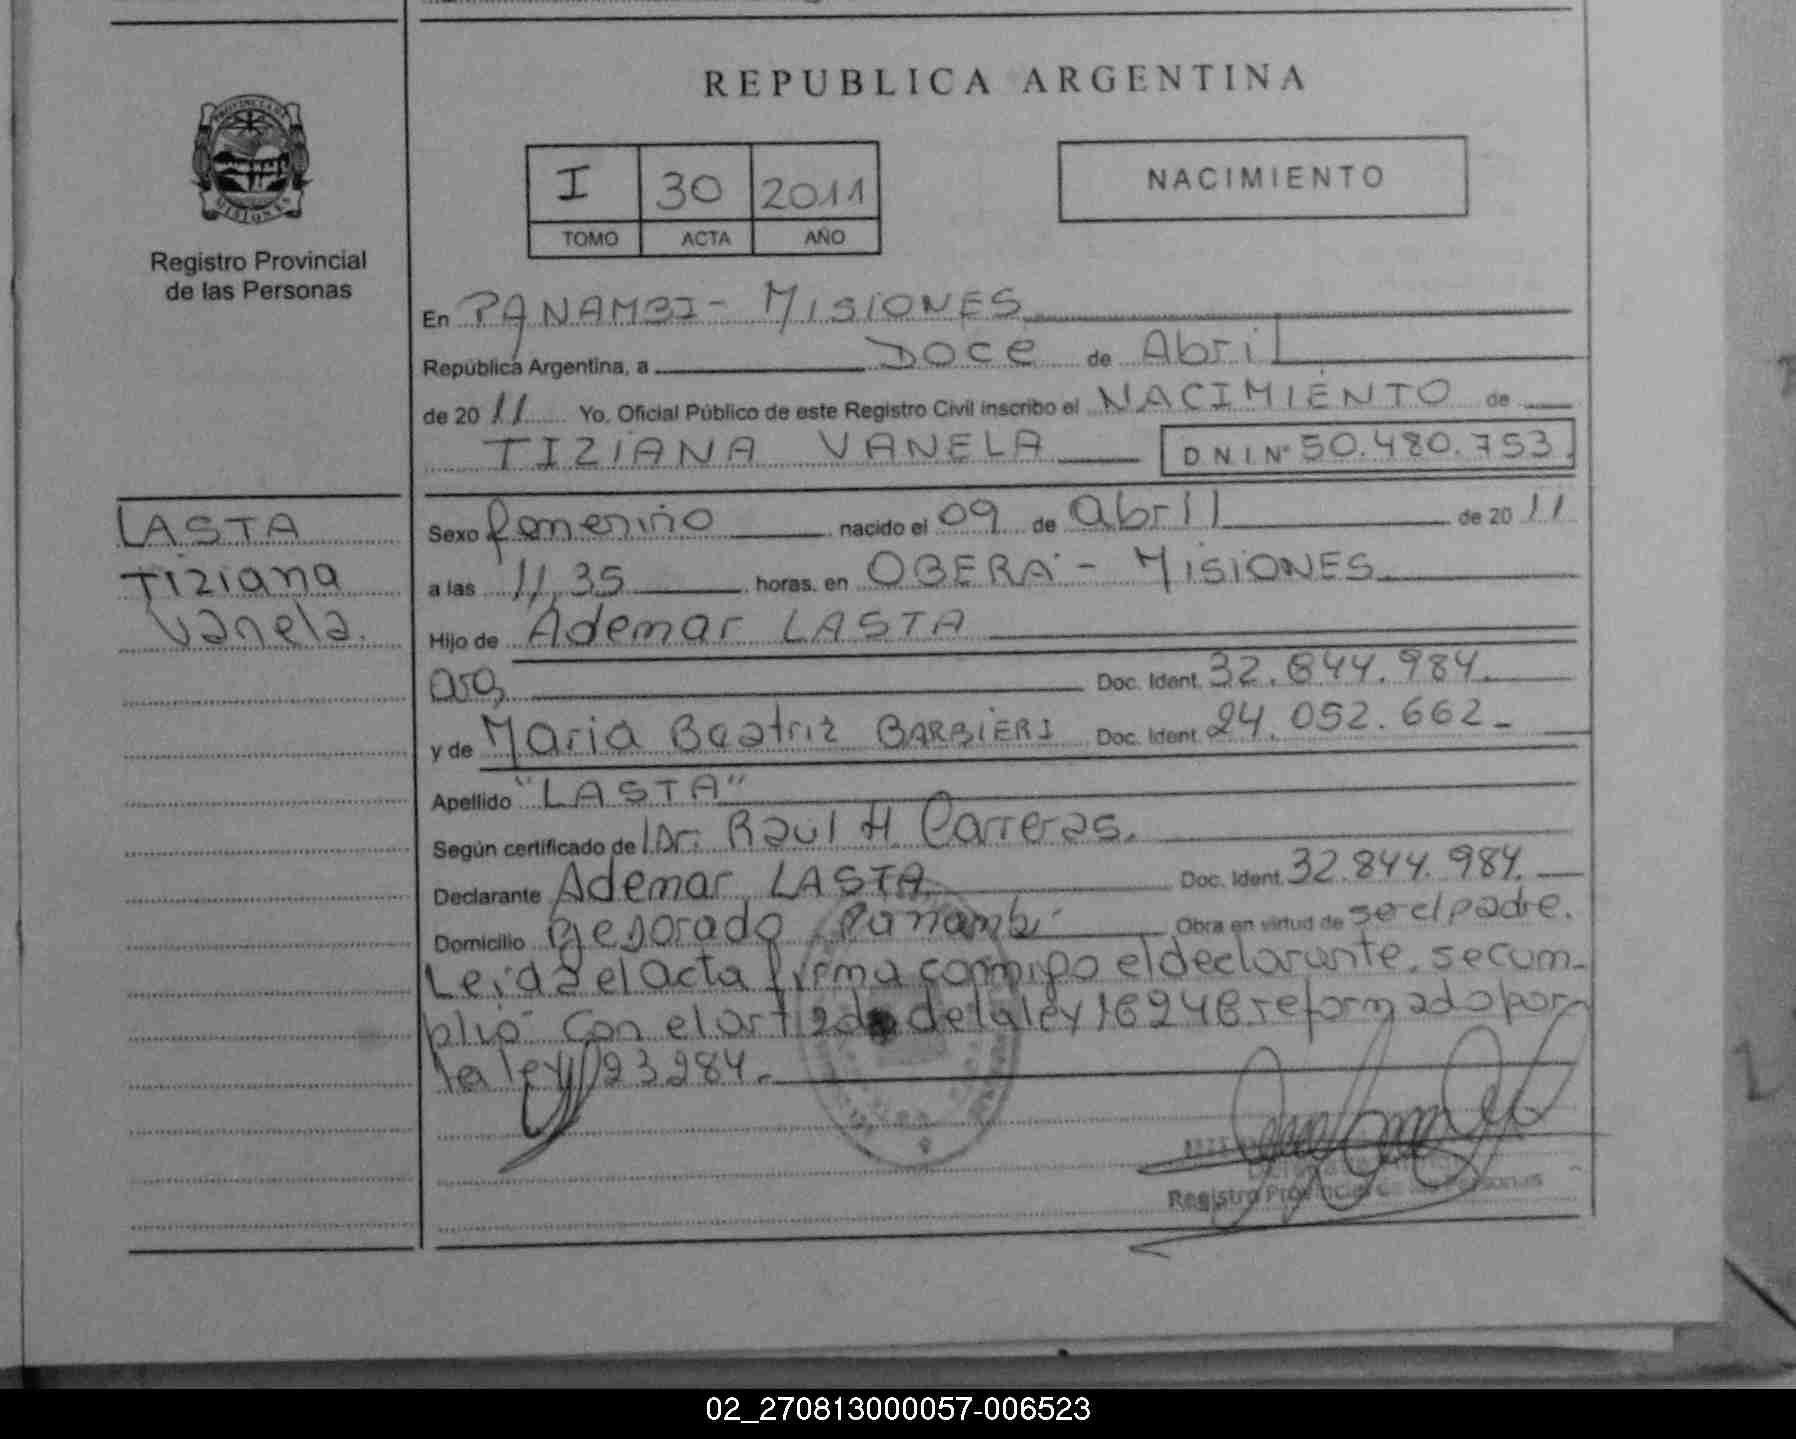 REPUBLICA ARGENTINA
PROVINCIA DE
MISIONES
Registro Provincial
de las Personas
I 30 2011
TOMO ACTA AÑO
NACIMIENTO
En PANAMBI - MISIONES
República Argentina, a DOCE de Abril
de 2011 Yo, Oficial Público de este Registro Civil inscribo el NACIMIENTO de
TIZIANA VANELA DNI Nº 50.480.753
LASTA
Tiziana
Vanela.
Sexo femenino nacido el 09 de abril de 2011
a las 11,35 horas, en OBERÁ - MISIONES
Hijo de Ademar LASTA
arg. Doc. Ident. 32.844.984.
y de Maria Beatriz BARBIERI Doc. Ident. 24.052.662-
Apellido "LASTA"
Según certificado de Dr. Raul H. Carreras.
Declarante Ademar LASTA Doc. Ident. 32.844.984.
Domicilio Panambí Obra en virtud de ser el padre.
Leida el acta firma conmigo el declarante. se cum-
plió con el art de la ley 18248 reformado por
la ley 23284.
Registro Provincial de las Personas
02_270813000057-006523